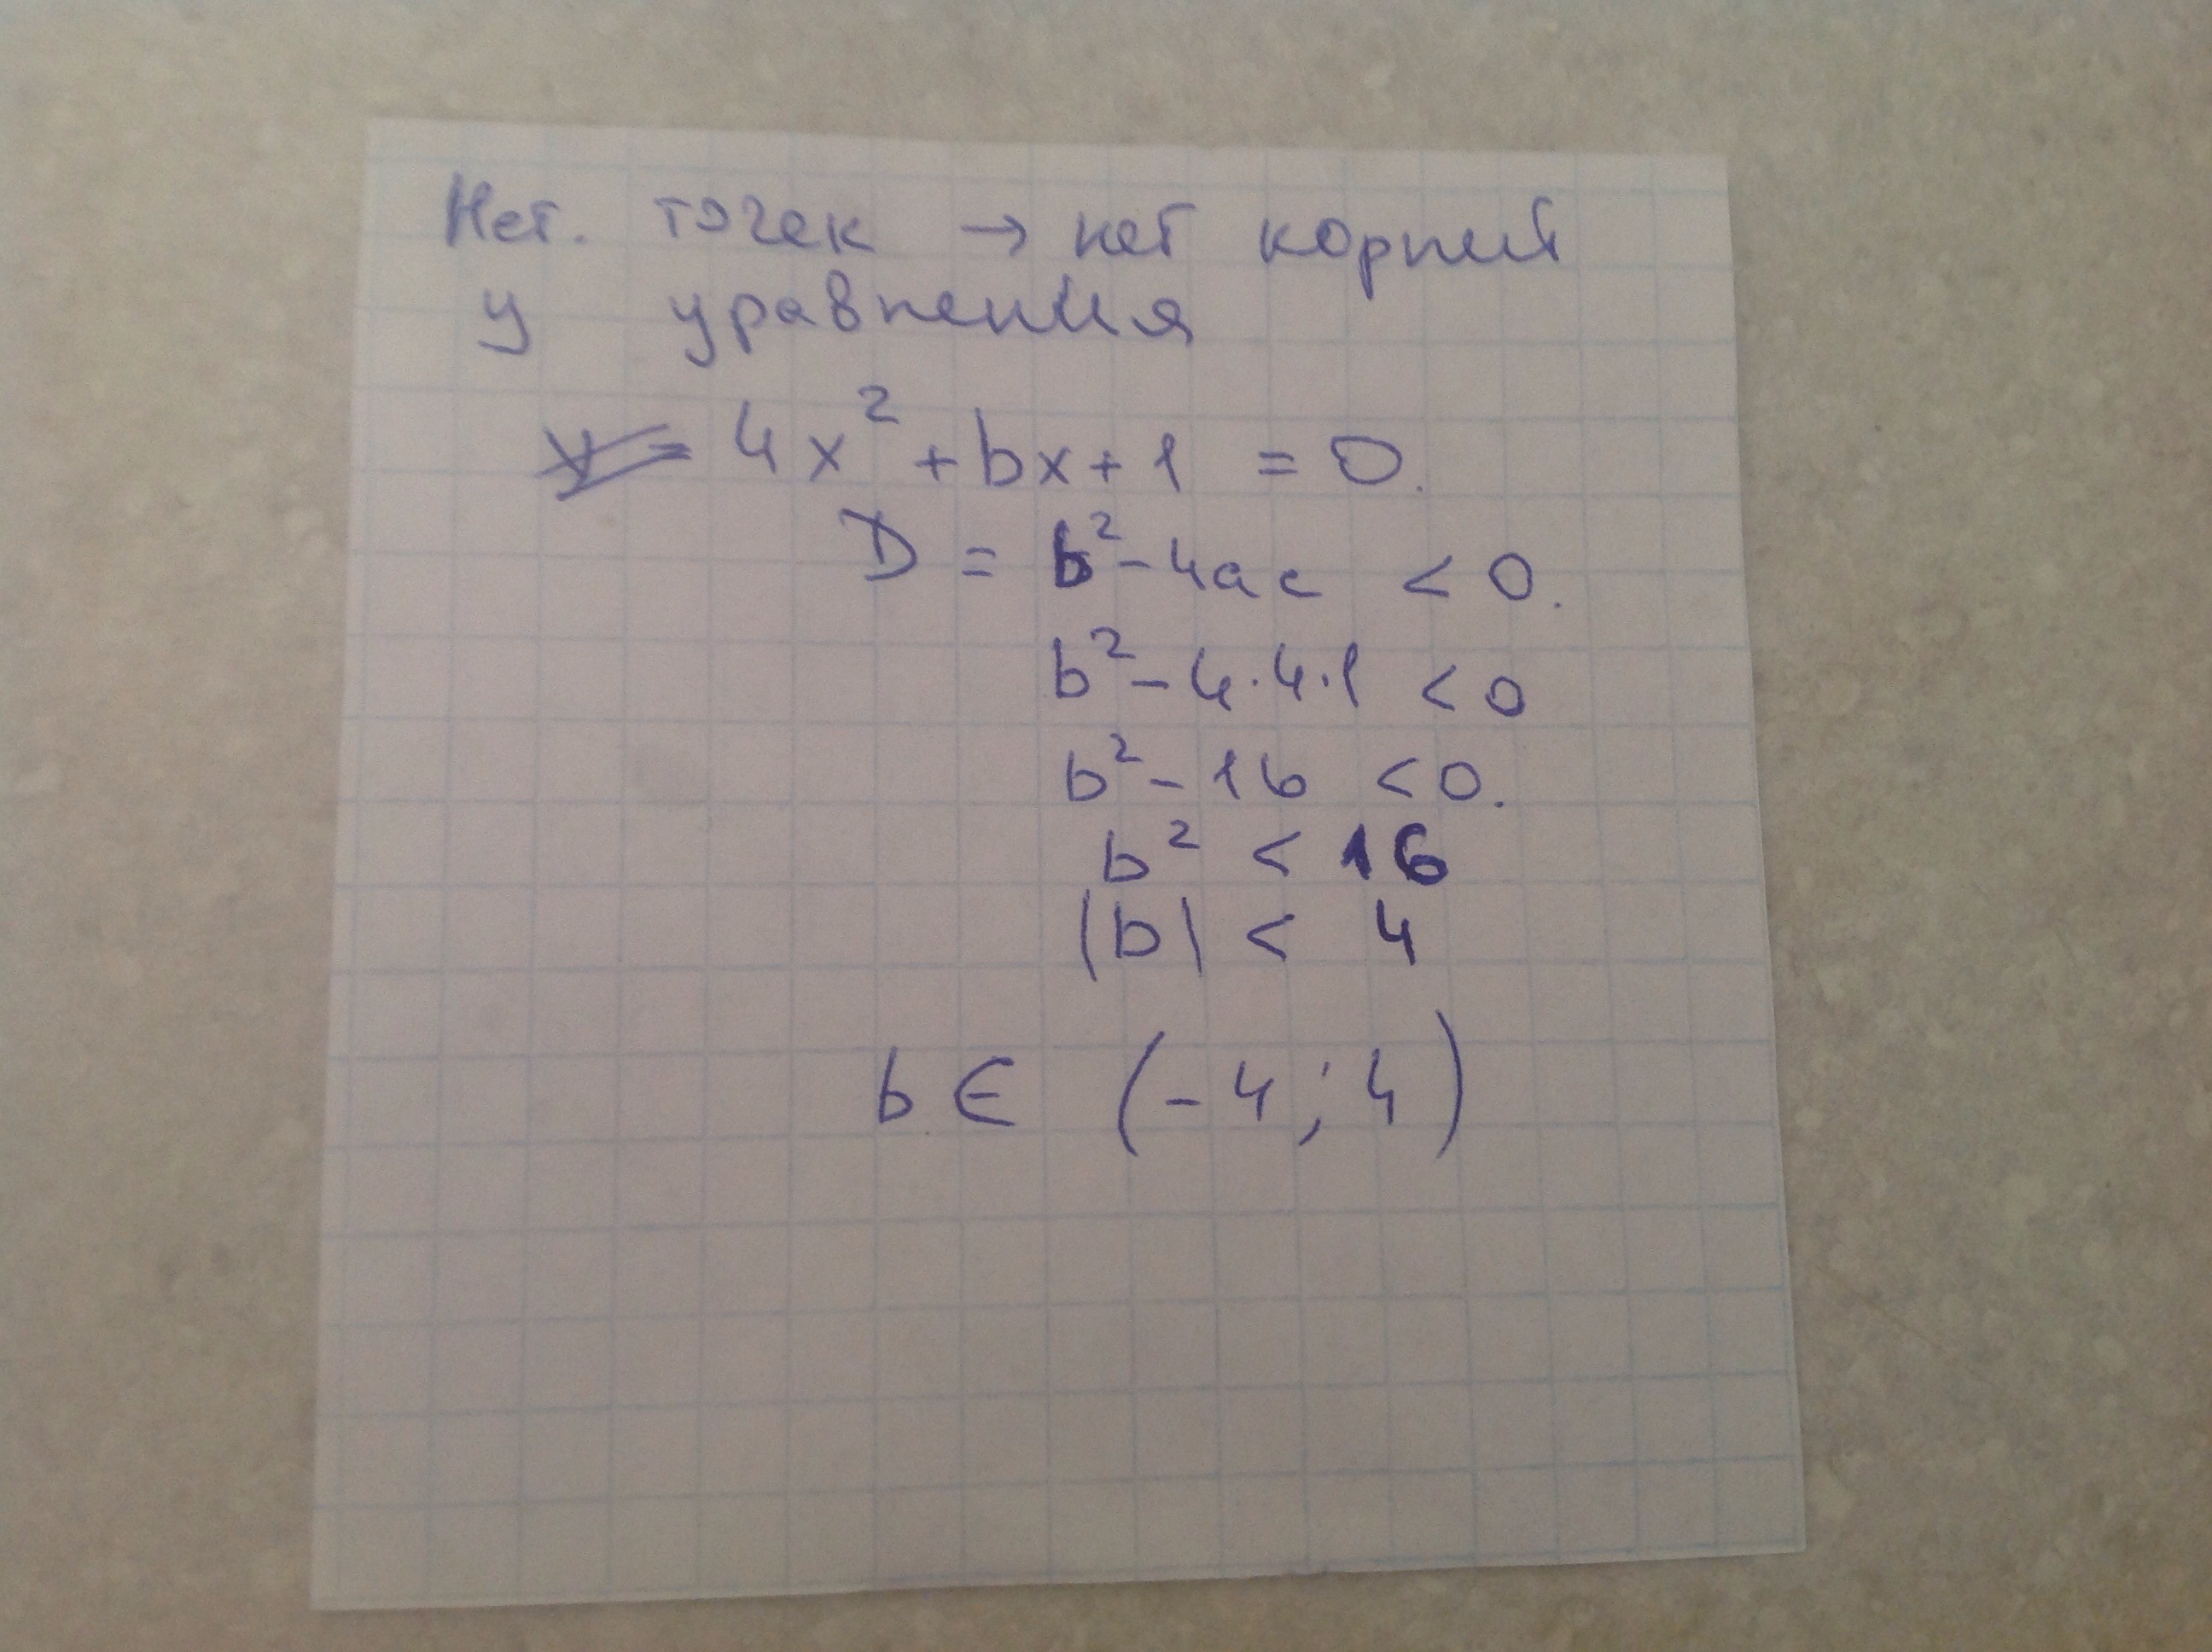 Нет. точек → нет корней
у уравнения
4x² + bx + 1 = 0.
D = b² - 4ac < 0.
b² - 4·4·1 < 0
b² - 16 < 0.
b² < 16
|b| < 4
b ∈ (-4; 4)